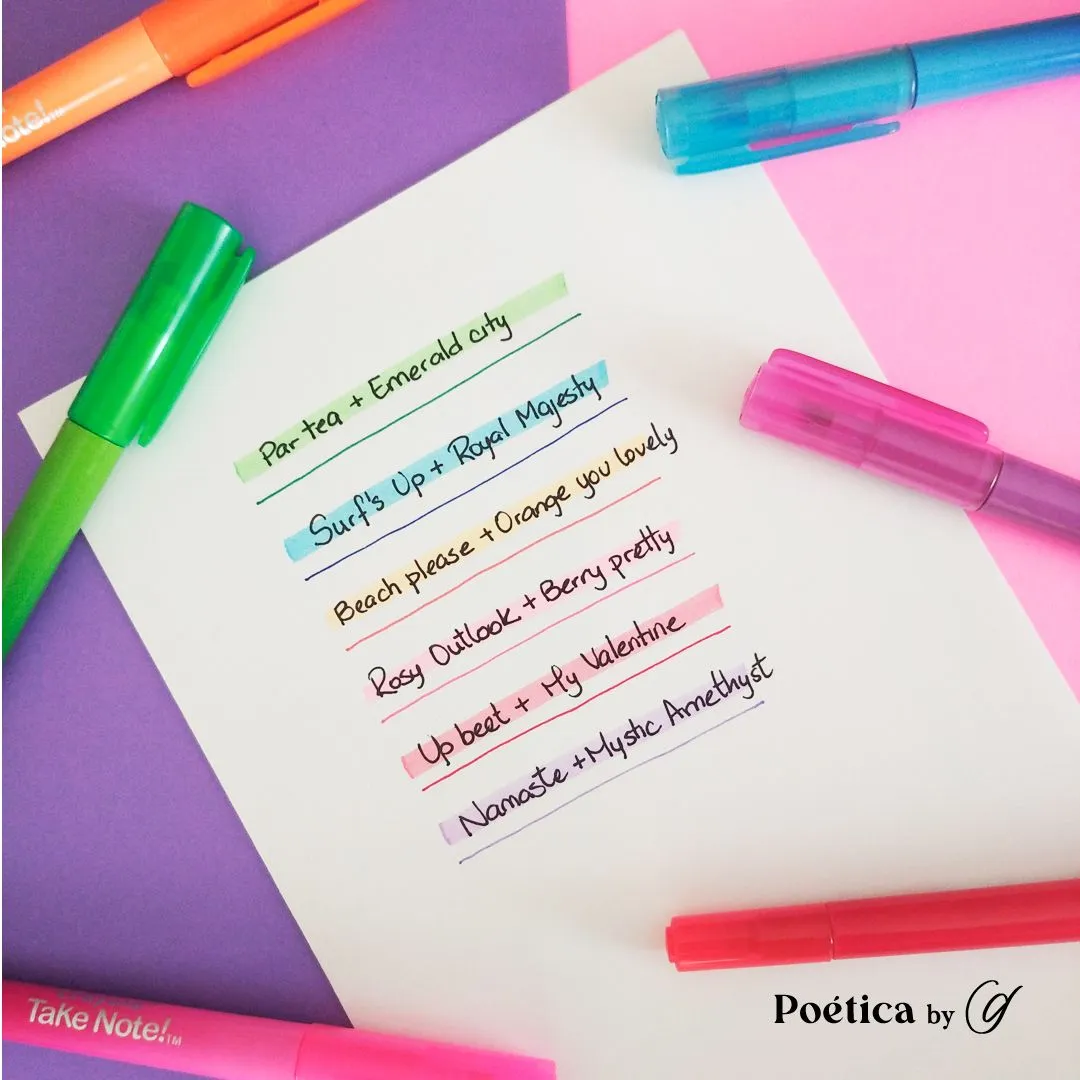 ote!™
Par tea + Emerald city
Surf's Up + Royal Majesty
Beach please + Orange you lovely
Rosy Outlook + Berry pretty
Up beet + My Valentine
Namaste + Mystic Amethyst
Take Note!™
Poética by g